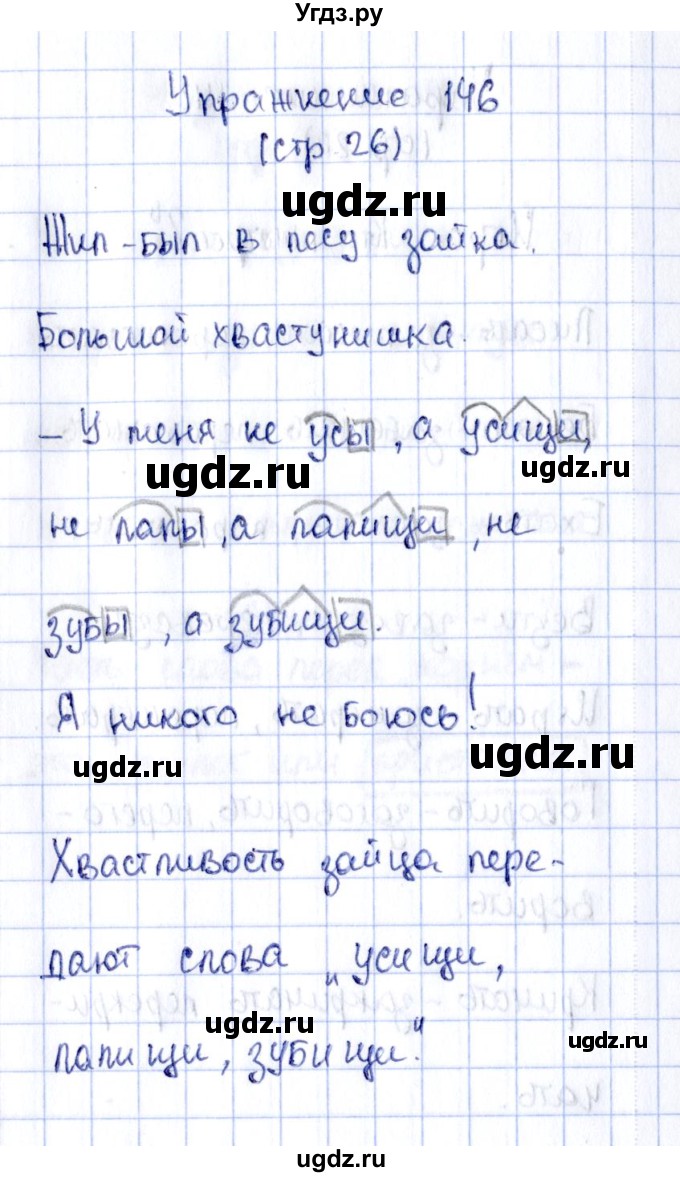 Угдз.ру
Упражнение 146
(стр 26)
ugdz.ru
Жил-был в лесу зайка.
Большой хвастунишка.
– У меня не усы, а усищи,
ugdz.ru
ugdz.ru
не лапы, а лапищи, не
зубы, а зубищи.
Я никого не боюсь!
ugdz.ru
ugdz.ru
Хвастливость зайца пере-
дают слова „усищи,
ugdz.ru
лапищи, зубищи."
ugdz.ru
ugdz.ru